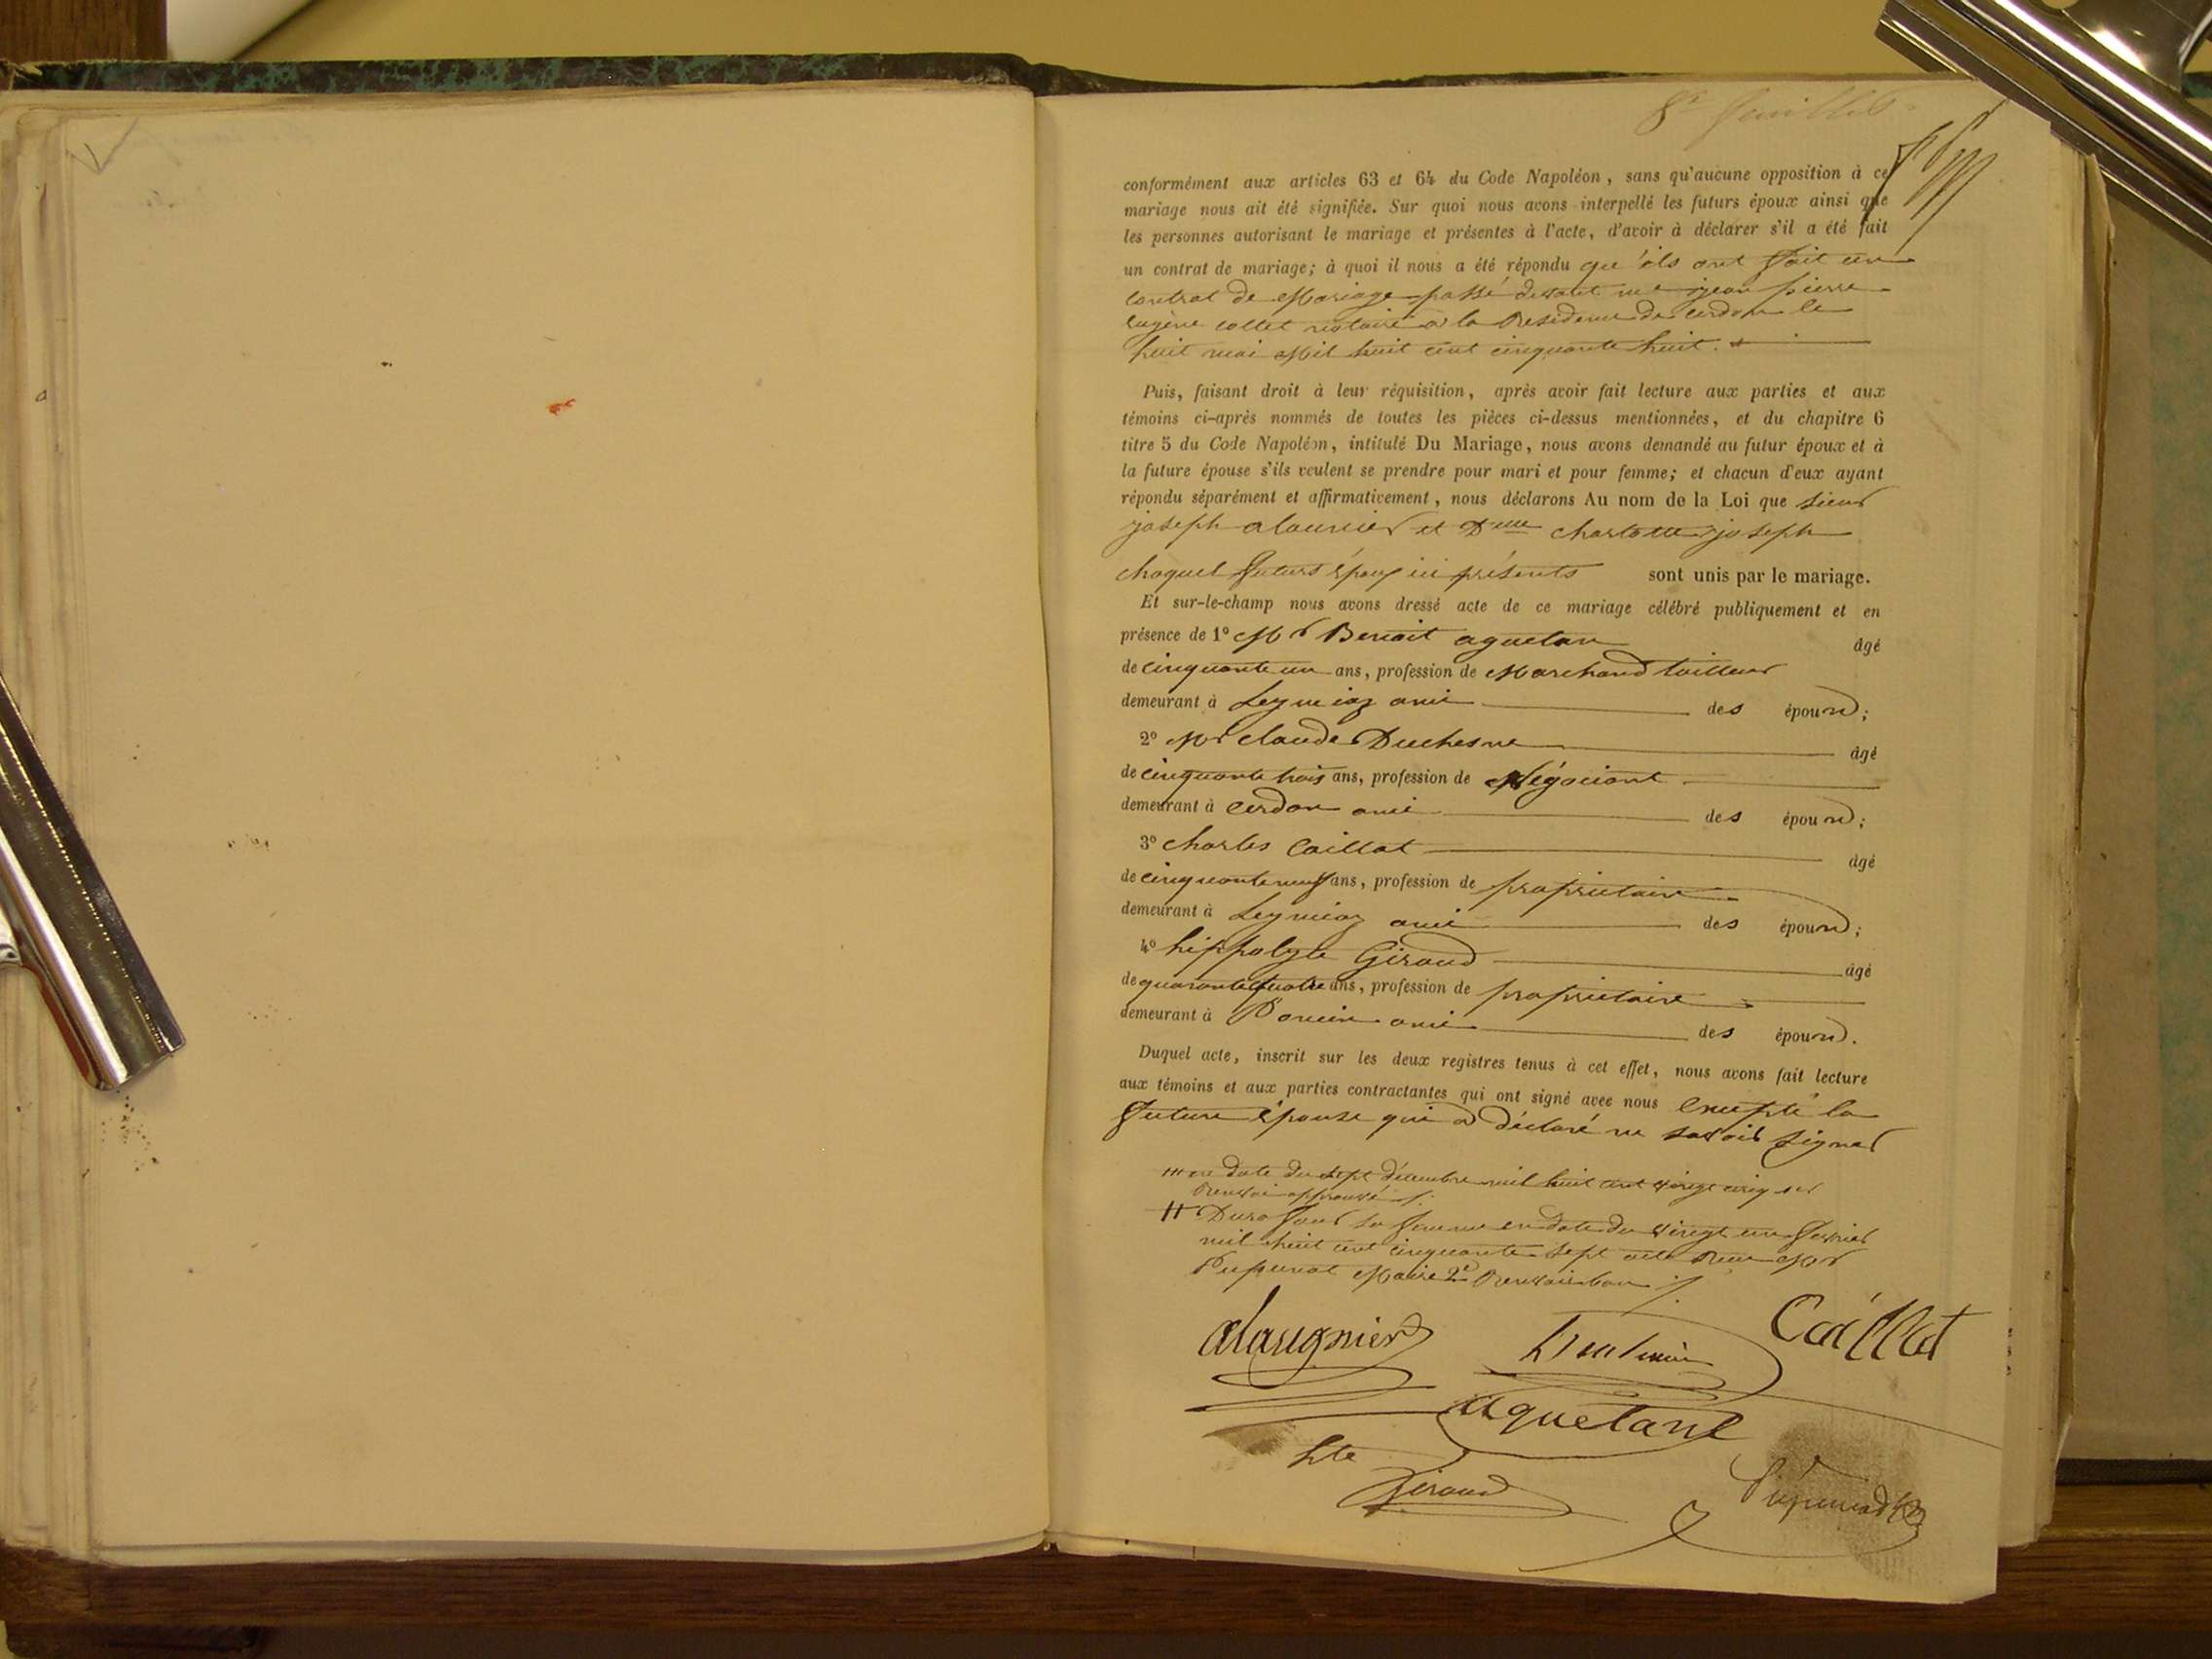 8e feuillet
conformément aux articles 63 et 64 du Code Napoléon, sans qu'aucune opposition à ce
mariage nous ait été signifiée. Sur quoi nous avons interpellé les futurs époux ainsi que
les personnes autorisant le mariage et présentes à l'acte, d'avoir à déclarer s'il a été fait
un contrat de mariage; à quoi il nous a été répondu qu'ils ont fait un
contrat de Mariage passé devant me jean pierre
eugène collet notaire a la Residence de cerdon le
huit mai Mil huit cent cinquante huit.
Puis, faisant droit à leur réquisition, après avoir fait lecture aux parties et aux
témoins ci-après nommés de toutes les pièces ci-dessus mentionnées, et du chapitre 6
titre 5 du Code Napoléon, intitulé Du Mariage, nous avons demandé au futur époux et à
la future épouse s'ils veulent se prendre pour mari et pour femme; et chacun d'eux ayant
répondu séparément et affirmativement, nous déclarons Au nom de la Loi que sieur
joseph alaunier et Dlle charlotte joseph
chaquet futurs époux ici présents sont unis par le mariage.
Et sur-le-champ nous avons dressé acte de ce mariage célébré publiquement et en
présence de 1° Mr Benoit aguetan âgé
de cinquante un ans, profession de Marchand tailleur
demeurant à Leymiaz ami des époux;
2° Mr claude Duchesne âgé
de cinquante trois ans, profession de Négociant
demeurant à cerdon ami des époux;
3° charles Caillat âgé
de cinquante neuf ans, profession de propriétaire
demeurant à Leymiaz ami des époux;
4° hippolyte Giraud âgé
de quarante quatre ans, profession de propriétaire
demeurant à Poncin ami des époux.
Duquel acte, inscrit sur les deux registres tenus à cet effet, nous avons fait lecture
aux témoins et aux parties contractantes qui ont signé avec nous excepté la
future épouse qui a déclaré ne savoir signer
en date du sept décembre mil huit cent vingt cinq
Renvoi approuvé
sa femme en date du vingt un fevrier
mil huit cent cinquante sept acte Mr
Maire 2e Renvoi bon
alaugnier
Caillat
aguetant
hte
Giraud